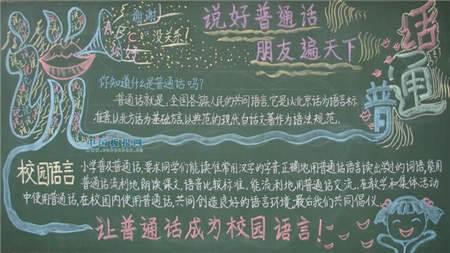 说好普通话
朋友遍天下
谢谢
没关系!
A
B
C
说
话
通
普
你知道什么是普通话吗?
普通话就是,全国各族人民的共同语言,它是以北京话为语言标
准音以北方话为基础方言以典范的现代白话文著作为语法规范.
校园语言
小学普及普通话,要求同学们能读准常用汉字的字音,正确地用普通话语言
普通话流利地朗读课文,语音比较标准,能流利地用普通话交流,在教学和集体活动
中使用普通话,在校园内使用普通话,共同创造良好的语言环境,最后我们共同倡仪
让普通话成为校园语言!